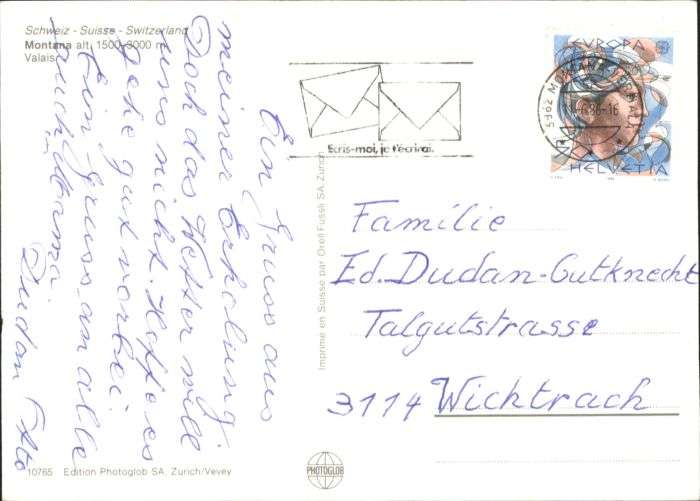 Schweiz - Suisse - Switzerland
Montana alt. 1500-3000 m
Valais
Ein Gruss aus
meiner Erholung.
Doch das Wetter will
uns nicht. Hoffe es
gehe gut vorbei.
Ein Gruss an alle
auch Mama
Dudan Otto
10765 Edition Photoglob SA. Zürich/Vevey
PHOTOGLOB
Imprimé en Suisse par Orell Füssli SA, Zürich
Ecris-moi, je t'écrirai.
EUROPA
3962 MONTANA-VERMALA
86-16
HELVETIA
Familie
Ed. Dudan-Gutknecht
Talgutstrasse
3114 Wichtrach